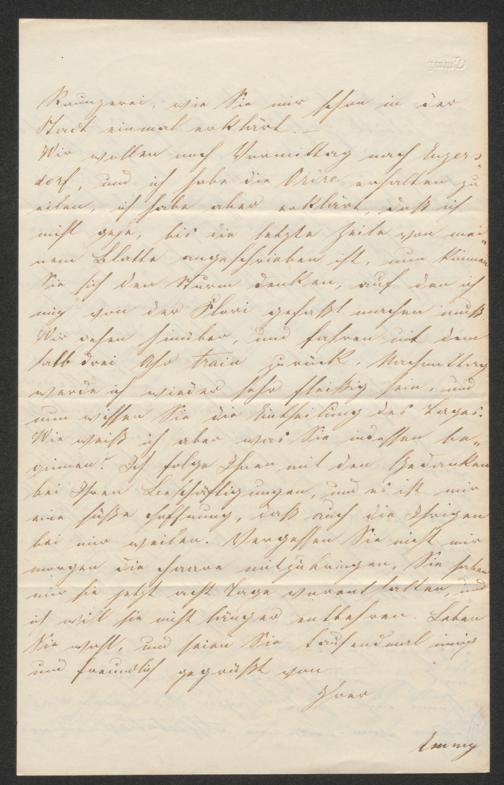 Raunzerei, wie Sie mir schon in der
Stadt einmal erklärt. –
Wir wollen noch Vormittag nach Enzers-
dorf, und ich habe die Ordre erhalten zu
eilen, ich habe aber erklärt, daß ich
nicht gehe, bis die letzte Zeile von mei-
nem Blatte angeschrieben ist, nun können
Sie sich den Sturm denken, auf den ich
mich von der Flori gefaßt machen muß.
Wir gehen hinüber, und fahren mit dem
halb drei Uhr train zurück. Nachmittag
werde ich wieder sehr fleißig sein, und
nun wissen Sie die Eintheilung des Tages.
Wie weiß ich aber was Sie indessen be-
ginnen? Ich folge Ihnen mit den Gedanken
bei Ihren Beschäftigungen, und es ist mir
eine süße Hoffnung, daß auch die Ihrigen
bei mir weilen. Vergessen Sie nicht mir
morgen die Haare mitzubringen, Sie haben
mir sie jetzt acht Tage vorenthalten, und
ich will sie nicht länger entbehren. Leben
Sie wohl, und seien Sie tausendmal innig
und freundlich gegrüßt von
Ihrer
Emmy